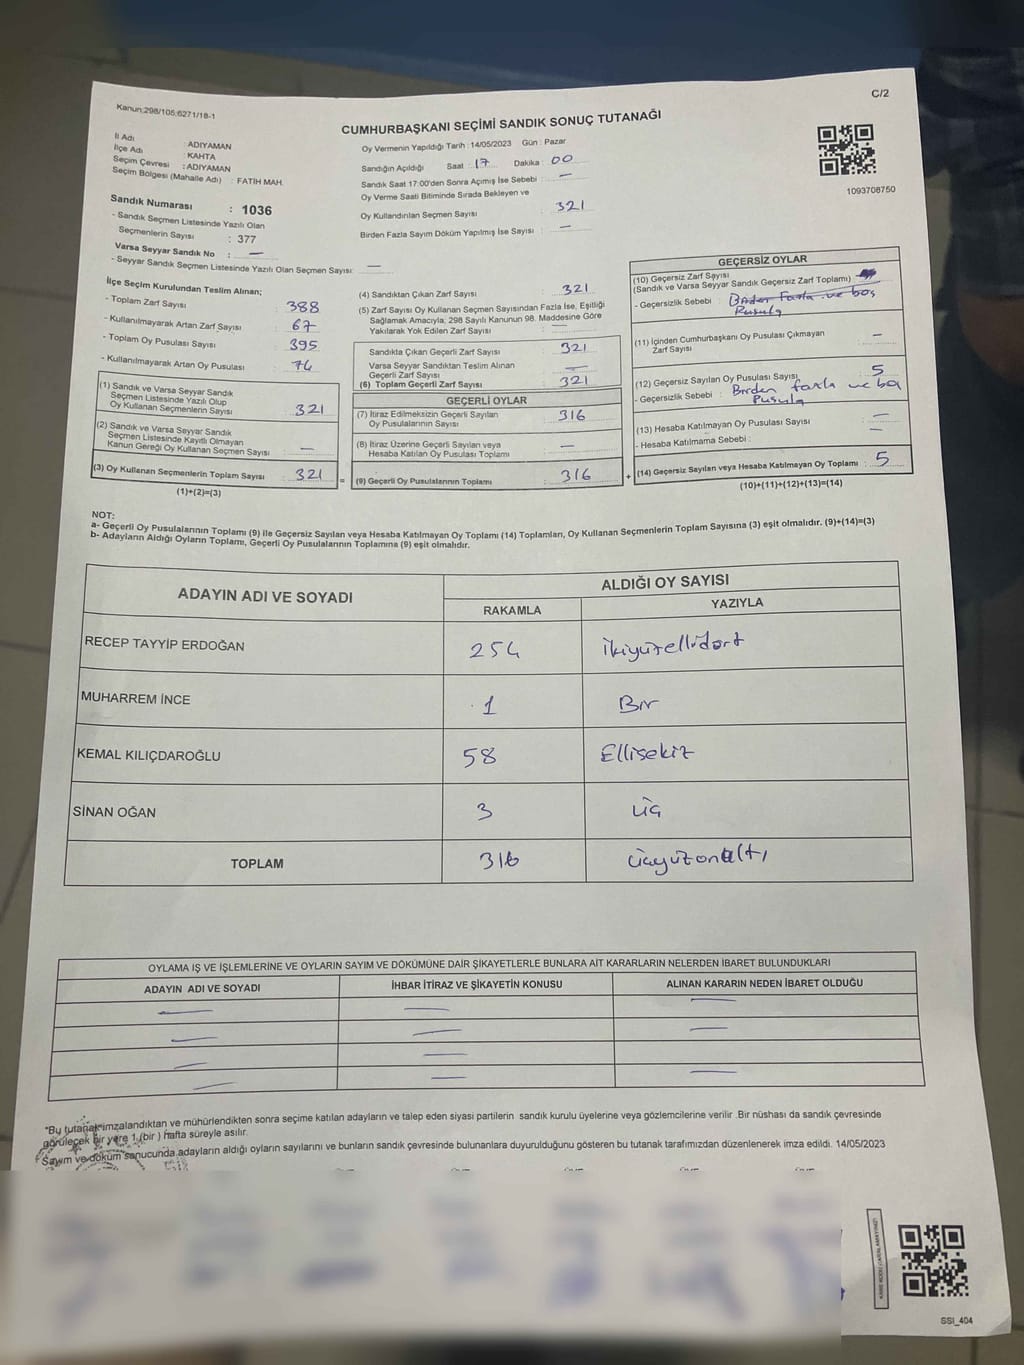 Kanun:298/105;6271/18-1
C/2
CUMHURBAŞKANI SEÇİMİ SANDIK SONUÇ TUTANAĞI
İl Adı : ADIYAMAN
İlçe Adı : KAHTA
Seçim Çevresi : ADIYAMAN
Seçim Bölgesi (Mahalle Adı) : FATİH MAH.
Sandık Numarası : 1036
- Sandık Seçmen Listesinde Yazılı Olan
Seçmenlerin Sayısı : 377
Varsa Seyyar Sandık No : —
- Seyyar Sandık Seçmen Listesinde Yazılı Olan Seçmen Sayısı: —
Oy Vermenin Yapıldığı Tarih :14/05/2023 Gün : Pazar
Sandığın Açıldığı Saat : 17 Dakika : 00
Sandık Saat 17:00'den Sonra Açımış İse Sebebi : —
Oy Verme Saati Bitiminde Sırada Bekleyen ve
Oy Kullandırılan Seçmen Sayısı : 321
Birden Fazla Sayım Döküm Yapılmış İse Sayısı : —
1093708750
İlçe Seçim Kurulundan Teslim Alınan;
- Toplam Zarf Sayısı : 388
- Kullanılmayarak Artan Zarf Sayısı : 67
- Toplam Oy Pusulası Sayısı : 395
- Kullanılmayarak Artan Oy Pusulası : 74
(1) Sandık ve Varsa Seyyar Sandık
Seçmen Listesinde Yazılı Olup
Oy Kullanan Seçmenlerin Sayısı : 321
(2) Sandık ve Varsa Seyyar Sandık
Seçmen Listesinde Kayıtlı Olmayan
Kanun Gereği Oy Kullanan Seçmen Sayısı : —
(3) Oy Kullanan Seçmenlerin Toplam Sayısı : 321
(1)+(2)=(3)
(4) Sandıktan Çıkan Zarf Sayısı : 321
(5) Zarf Sayısı Oy Kullanan Seçmen Sayısından Fazla İse, Eşitliği
Sağlamak Amacıyla; 298 Sayılı Kanunun 98. Maddesine Göre
Yakılarak Yok Edilen Zarf Sayısı : —
Sandıkta Çıkan Geçerli Zarf Sayısı : 321
Varsa Seyyar Sandıktan Teslim Alınan
Geçerli Zarf Sayısı : —
(6) Toplam Geçerli Zarf Sayısı : 321
GEÇERLİ OYLAR
(7) İtiraz Edilmeksizin Geçerli Sayılan
Oy Pusulalarının Sayısı : 316
(8) İtiraz Üzerine Geçerli Sayılan veya
Hesaba Katılan Oy Pusulası Toplamı : —
= (9) Geçerli Oy Pusulalarının Toplamı : 316
GEÇERSİZ OYLAR
(10) Geçersiz Zarf Sayısı
(Sandık ve Varsa Seyyar Sandık Geçersiz Zarf Toplamı)
- Geçersizlik Sebebi : Birden Fazla ve boş
Pusula
(11) İçinden Cumhurbaşkanı Oy Pusulası Çıkmayan
Zarf Sayısı : —
(12) Geçersiz Sayılan Oy Pusulası Sayısı : 5
- Geçersizlik Sebebi : Birden fazla ve boş
Pusula
(13) Hesaba Katılmayan Oy Pusulası Sayısı : —
- Hesaba Katılmama Sebebi : —
+ (14) Geçersiz Sayılan veya Hesaba Katılmayan Oy Toplamı : 5
(10)+(11)+(12)+(13)=(14)
NOT:
a- Geçerli Oy Pusulalarının Toplamı (9) ile Geçersiz Sayılan veya Hesaba Katılmayan Oy Toplamı (14) Toplamları, Oy Kullanan Seçmenlerin Toplam Sayısına (3) eşit olmalıdır. (9)+(14)=(3)
b- Adayların Aldığı Oyların Toplamı, Geçerli Oy Pusulalarının Toplamına (9) eşit olmalıdır.
ADAYIN ADI VE SOYADI
ALDIĞI OY SAYISI
RAKAMLA YAZIYLA
RECEP TAYYİP ERDOĞAN 254 ikiyüzellidört
MUHARREM İNCE 1 Bir
KEMAL KILIÇDAROĞLU 58 Ellisekiz
SİNAN OĞAN 3 üç
TOPLAM 316 üçyüzonaltı
OYLAMA İŞ VE İŞLEMLERİNE VE OYLARIN SAYIM VE DÖKÜMÜNE DAİR ŞİKAYETLERLE BUNLARA AİT KARARLARIN NELERDEN İBARET BULUNDUKLARI
ADAYIN ADI VE SOYADI İHBAR İTİRAZ VE ŞİKAYETİN KONUSU ALINAN KARARIN NEDEN İBARET OLDUĞU
*Bu tutanak imzalandıktan ve mühürlendikten sonra seçime katılan adayların ve talep eden siyasi partilerin sandık kurulu üyelerine veya gözlemcilerine verilir .Bir nüshası da sandık çevresinde
görülecek bir yere 1 (bir ) hafta süreyle asılır.
Sayım ve döküm sonucunda adayların aldığı oyların sayılarını ve bunların sandık çevresinde bulunanlara duyurulduğunu gösteren bu tutanak tarafımızdan düzenlenerek imza edildi. 14/05/2023
SSI_404